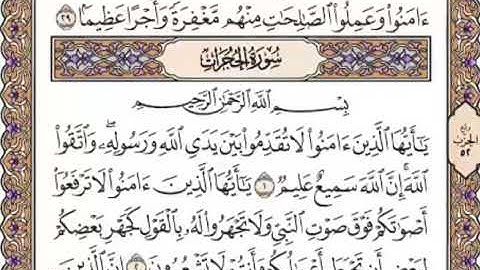 ءَامَنُوا۟ وَعَمِلُوا۟ ٱلصَّٰلِحَٰتِ مِنْهُم مَّغْفِرَةً وَأَجْرًا عَظِيمًۢا ٢٩
سُورَةُ الحُجُرَاتِ
بِسْمِ ٱللَّهِ ٱلرَّحْمَٰنِ ٱلرَّحِيمِ
يَٰٓأَيُّهَا ٱلَّذِينَ ءَامَنُوا۟ لَا تُقَدِّمُوا۟ بَيْنَ يَدَىِ ٱللَّهِ وَرَسُولِهِۦ وَٱتَّقُوا۟
ٱللَّهَ إِنَّ ٱللَّهَ سَمِيعٌ عَلِيمٌ ١ يَٰٓأَيُّهَا ٱلَّذِينَ ءَامَنُوا۟ لَا تَرْفَعُوٓا۟
أَصْوَٰتَكُمْ فَوْقَ صَوْتِ ٱلنَّبِىِّ وَلَا تَجْهَرُوا۟ لَهُۥ بِٱلْقَوْلِ كَجَهْرِ بَعْضِكُمْ
لِبَعْضٍ أَن تَحْبَطَ أَعْمَٰلُكُمْ وَأَنتُمْ لَا تَشْعُرُونَ ٢ إِنَّ ٱلَّذِينَ
ربع
الحزب
٥٢